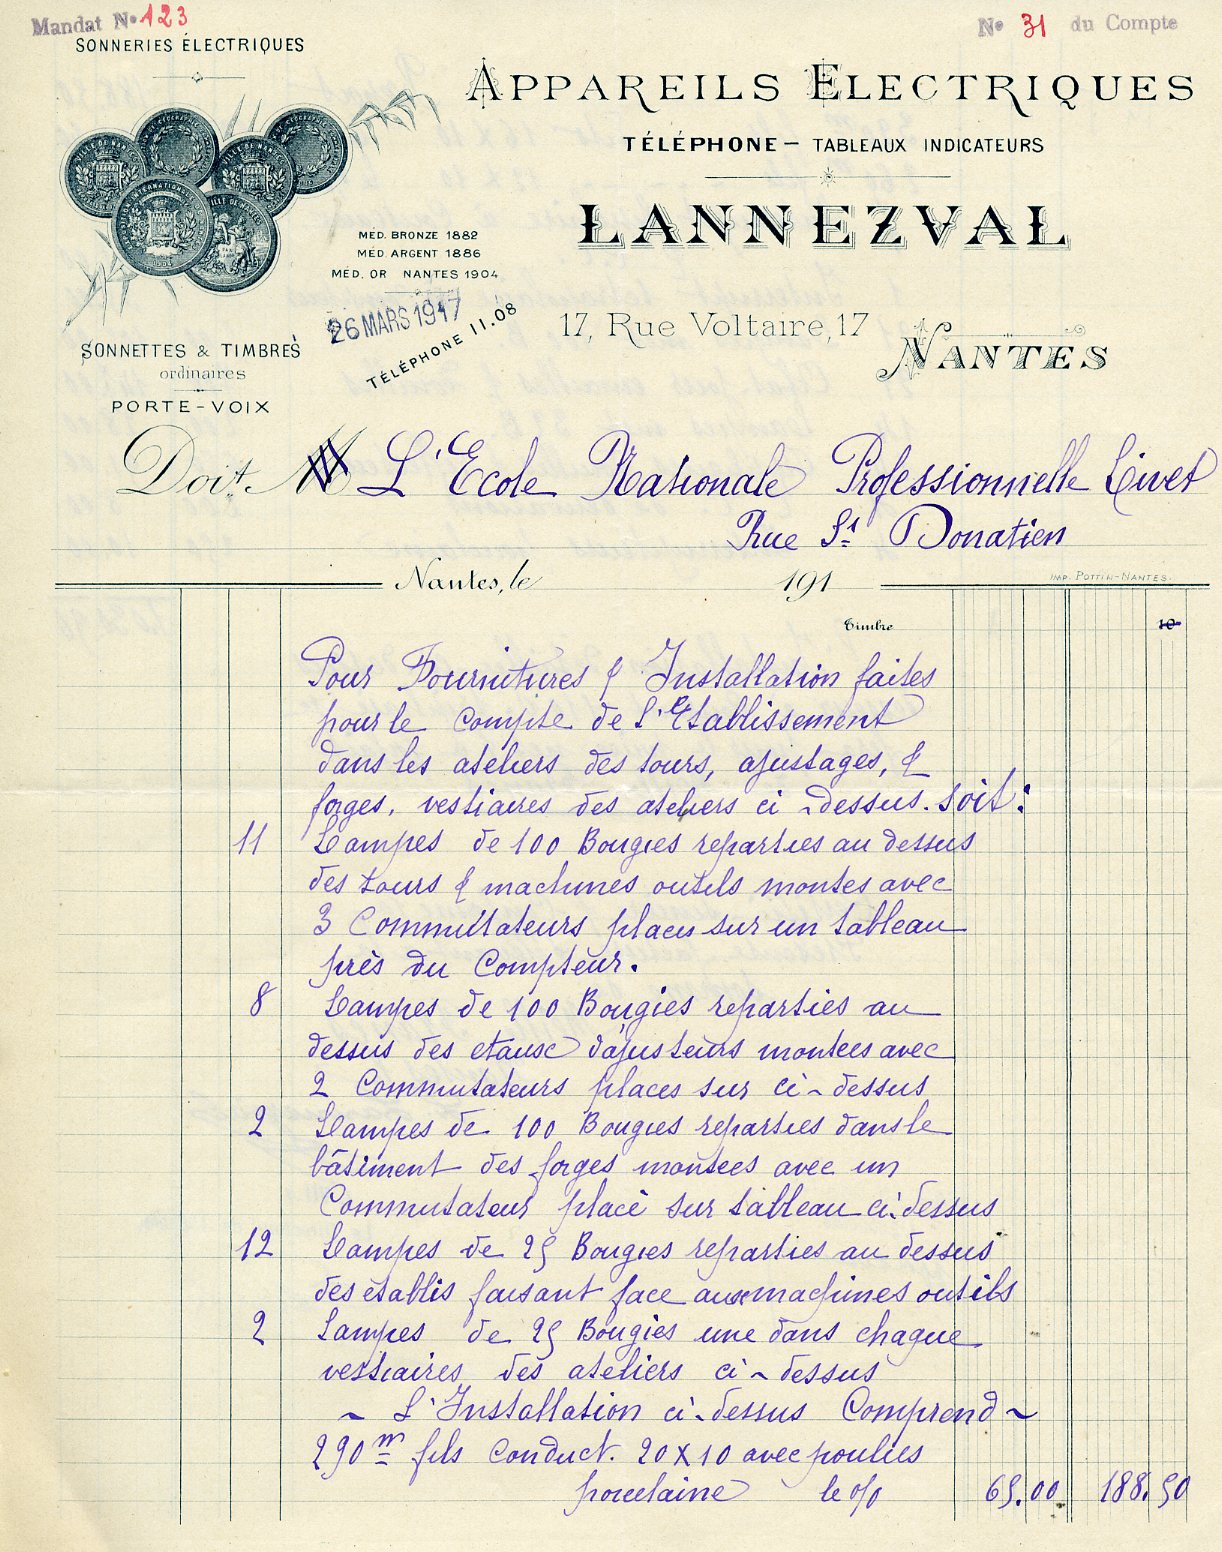 Mandat No 123
No 31 du Compte
SONNERIES ÉLECTRIQUES
APPAREILS ELECTRIQUES
TÉLÉPHONE - TABLEAUX INDICATEURS
LANNEZVAL
MÉD. BRONZE 1882
MÉD. ARGENT 1886
MÉD. OR NANTES 1904
26 MARS 1917
TÉLÉPHONE 11.08
17, Rue Voltaire, 17
NANTES
SONNETTES & TIMBRES
ordinaires
PORTE-VOIX
Doit M L'Ecole Nationale Professionnelle Livet
Rue St Donatien
Nantes, le 191
IMP. POTTIN-NANTES.
Timbre 10
Pour Fournitures & Installation faites
pour le compte de l'Etablissement
dans les ateliers des tours, ajustages, &
forges, vestiaires des ateliers ci-dessus. soit:
11 Lampes de 100 Bougies reparties au dessus
des tours & machines outils montes avec
3 Commutateurs places sur un tableau
près du Compteur.
8 Lampes de 100 Bougies reparties au
dessus des etaux d'ajusteurs montees avec
2 Commutateurs places sur ci-dessus
2 Lampes de 100 Bougies reparties dans le
bâtiment des forges montees avec un
Commutateur place sur tableau ci-dessus
12 Lampes de 25 Bougies reparties au dessus
des etablis faisant face aux machines outils
2 Lampes de 25 Bougies une dans chaque
vestiaires des ateliers ci-dessus
~ L'Installation ci-dessus Comprend ~
290m fils Conduct. 20 X 10 avec poulies
porcelaine le % 65.00 188.50